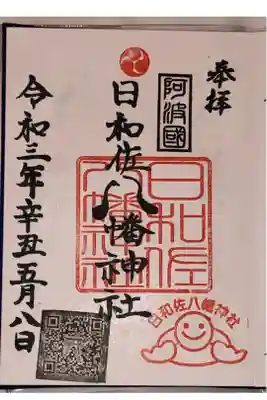 奉拝
阿波國
日和佐八幡神社
日和佐八幡神社
日和佐八幡神社
令和三年辛丑五月八日